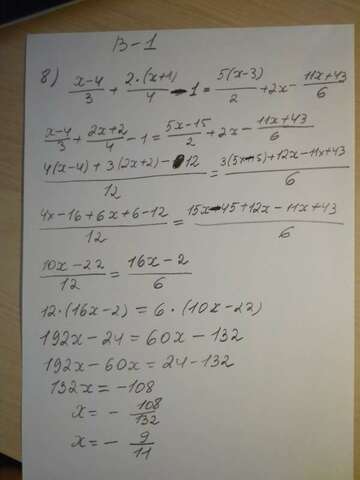 В-1
8) (x-4)/3 + 2·(x+1)/4 - 1 = 5(x-3)/2 + 2x - (11x+43)/6
(x-4)/3 + (2x+2)/4 - 1 = (5x-15)/2 + 2x - (11x+43)/6
(4(x-4) + 3(2x+2) - 12)/12 = (3(5x-15)+12x-11x+43)/6
(4x-16+6x+6-12)/12 = (15x-45+12x-11x+43)/6
(10x-22)/12 = (16x-2)/6
12·(16x-2) = 6·(10x-22)
192x-24 = 60x-132
192x-60x = 24-132
132x = -108
x = - 108/132
x = - 9/11